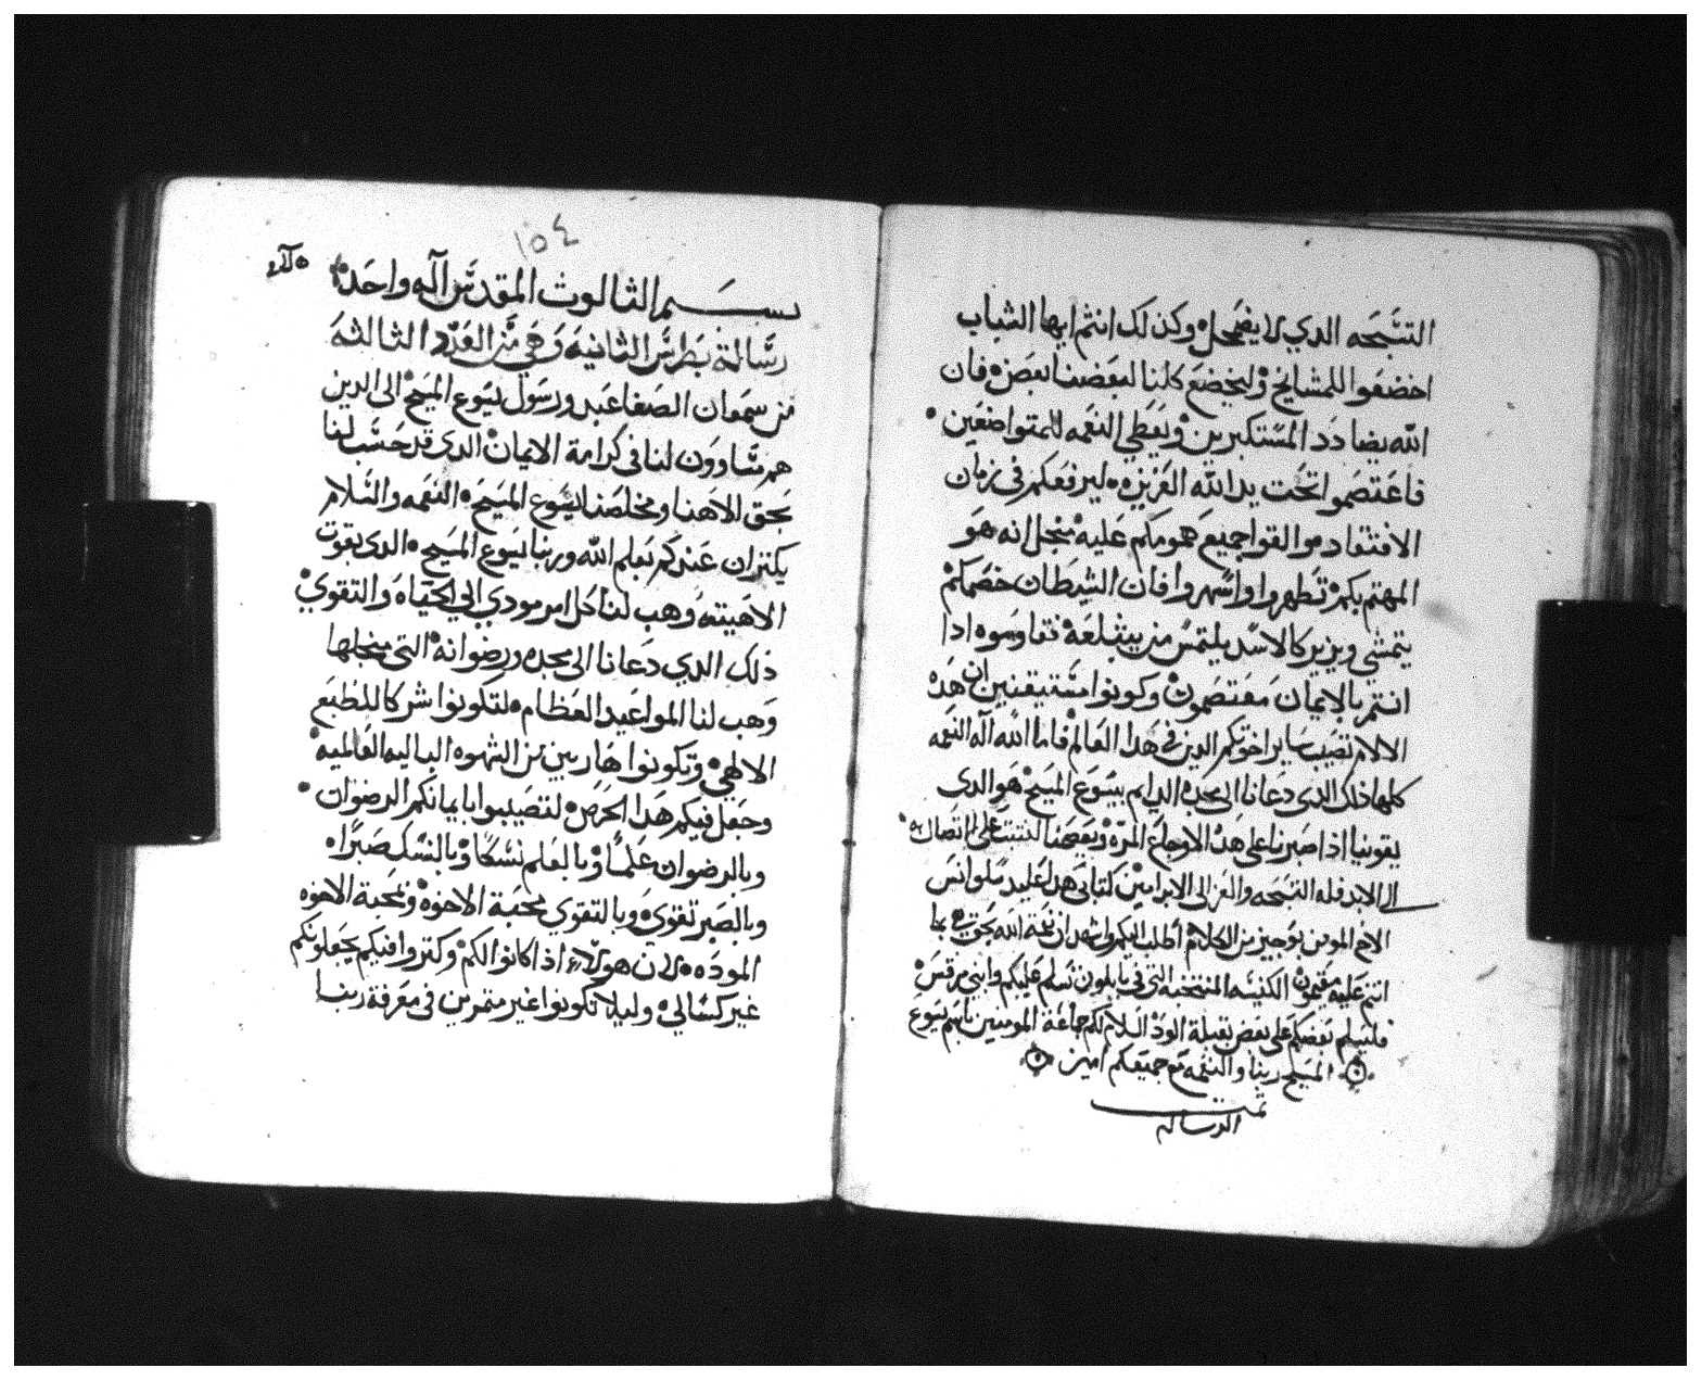 التسبحه الدي لا يضمحل وكدلك انتم ايها الشباب
اخضعوا للمشايخ وليخضع كلنا لبعضنا بعض فان
الله يضادد المستكبرين ويعطي النعمه للمتواضعين
فاعتصموا تحت يد الله العزيزه ليرفعكم في زمان
الافتقاد والقوا جميع همومكم عليه منجل انه هو
المهتم بكم تطهروا واسهروا فان الشيطان خصمكم
يتمشي ويزير كالاسد يلتمس من يبتلعه فقاوموه ادا
انتم بالايمان معتصمون وكونوا مستيقنين ان هده
الالام تصيب ساير اخوتكم الدين في هدا العالم فاما الله اله النعمه
كلها ذلك الدي دعانا الى مجده الدايم بيسوع المسيح هو الدي
يقوينا اذا صبرنا على هده الاوجاع المره ويعصمنا لنتبت على
الى الابد فله التسبحه والعز الى الابد امين كتبت هدا على يد سلوانس
الاخ المومن بوجيز من الكلام اطلب اليكم واشهد ان نعمة الله بحق هي ما
انتم عليه مقيمون الكنيسه المنتخبه التي في بابلون تسلم عليكم وابني مرقس
فليسلم بعضكم على بعض بقبلة الود السلام لكم جماعة المومنين باسم يسوع
المسيح ربنا والنعمه مع جميعكم امين
تمت
الرساله
١٥٤
بسم الثالوث المقدس اله واحد
رسالة بطرس الثانيه وهي من العدد الثالثه
من سمعان الصفا عبد ورسول يسوع المسيح الى الدين
هم متساوون لنا في كرامة الايمان الدي قد حسب لنا
بحق الاهنا ومخلصنا يسوع المسيح النعمه والسلام
يكتران عندكم بعلم الله وربنا يسوع المسيح الدي بقوت
الاهيته وهب لنا كل امر مودي الي الحياه والتقوي
ذلك الدي دعانا الى مجده ورضوانه التي منجلها
وهب لنا المواعيد العظام لتكونوا شركا للطبع
الالاهي وتكونوا هاربين من الشهوه الباليه العالميه
وجعل فيكم هدا الحرص لتصيبوا بايمانكم الرضوان
وبالرضوان علما وبالعلم نسكا وبالنسك صبرا
وبالصبر تقوي وبالتقوي محبة الاخوه وبمحبة الاخوه
الموده لان هولاء اذا كانوا لكم وكتروا فيكم يجعلونكم
غير كسالي وليلا تكونوا غير متمرين في معرفة ربنا